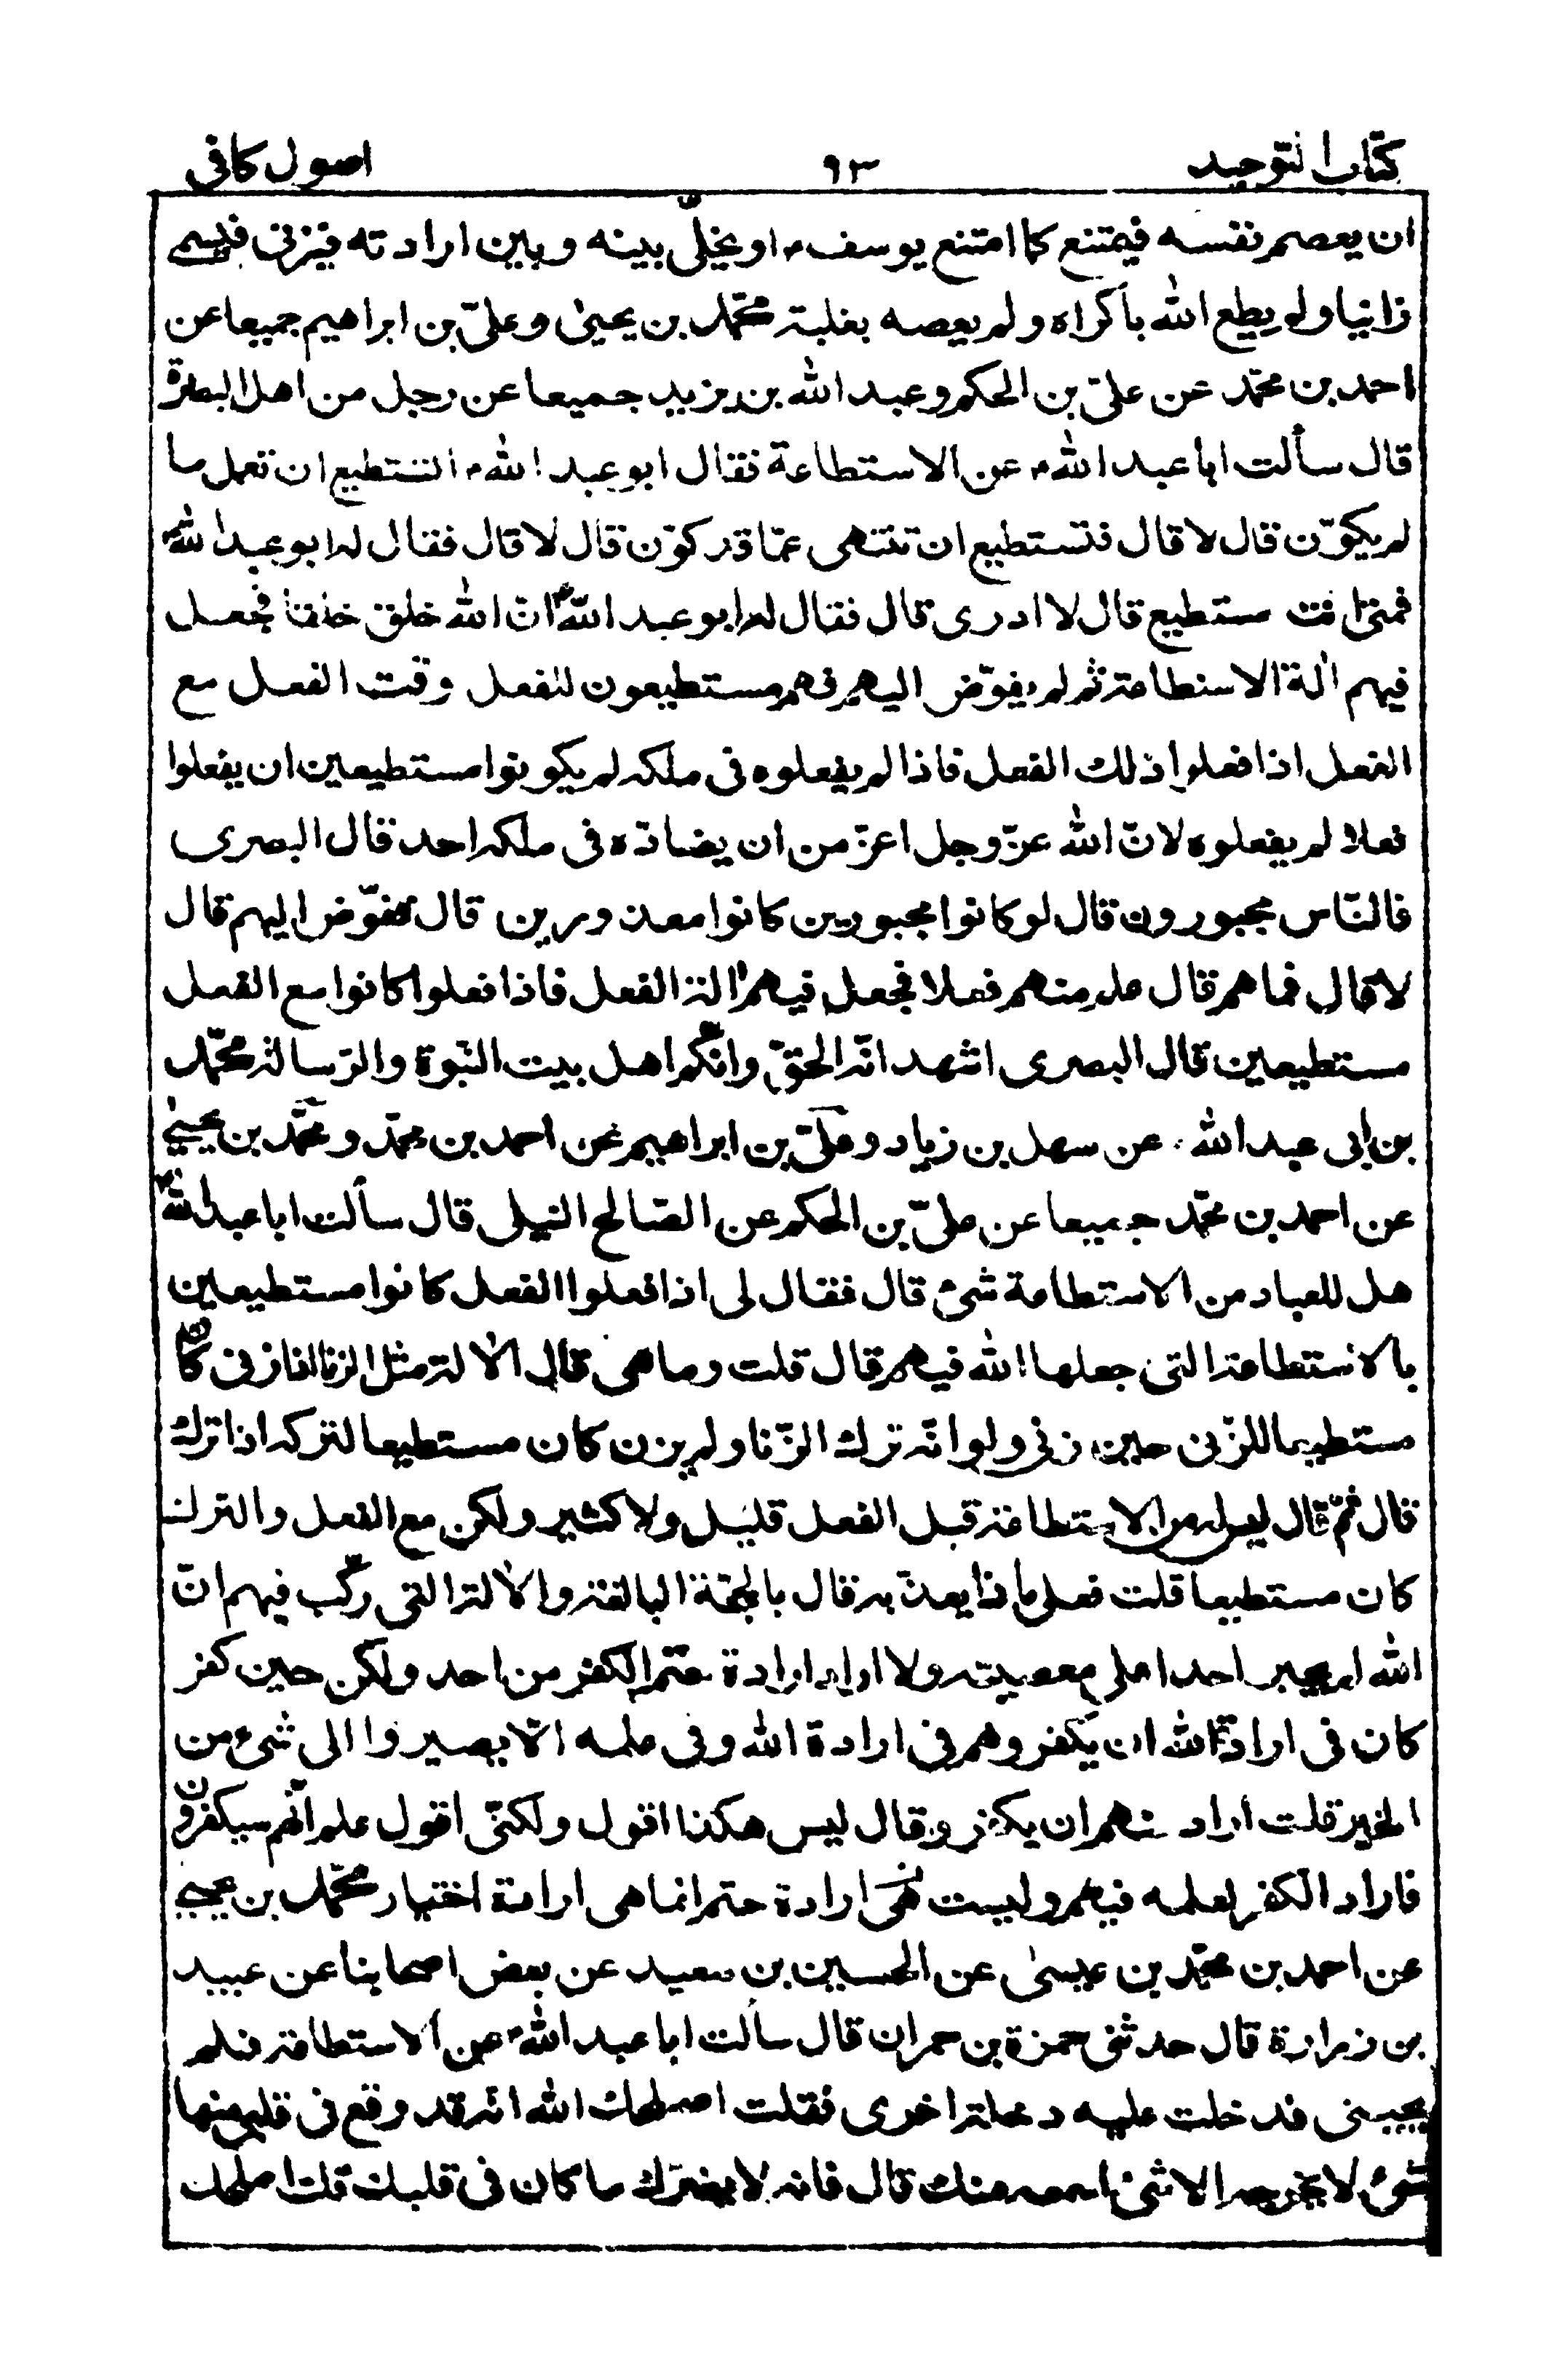 كتاب التوحيد ٩٣ اصول كافى
ان يعصم نفسه فيمتنع كما امتنع يوسفؑ او يخلّى بينه وبين ارادته فيزنى فيسمى
زانيا ولم يطع الله باكراه ولم يعصه بغلبة محمّد بن يحيىٰ وعلىّ بن ابراهيم جميعا عن
احمد بن محمّد عن علىّ بن الحكم وعبد الله بن يزيد جميعا عن رجل من اهل البصرة
قال سألت ابا عبد اللهؑ عن الاستطاعة فقال ابو عبد اللهؑ اتستطيع ان تعمل ما
لم يكوّن قال لا قال فتستطيع ان تنتهى عمّا قد كوّن قال لا قال فقال له ابو عبد اللهؑ
فمتى انت مستطيع قال لا ادرى قال فقال له ابو عبد اللهؑ انّ الله خلق خلقا فجعل
فيهم اٰلة الاستطاعة ثم لم يفوّض اليهم فهم مستطيعون للفعل وقت الفعل مع
الفعل اذا فعلوا ذلك الفعل فاذا لم يفعلوه فى ملكه لم يكونوا مستطيعين ان يفعلوا
فعلا لم يفعلوه لانّ الله عزّ وجل اعزّ من ان يضادّه فى ملكه احد قال البصرى
فالنّاس مجبورون قال لو كانوا مجبورين كانوا معذورين قال ففوّض اليهم قال
لا قال فما هم قال علم منهم فعلا فجعل فيهم اٰلة الفعل فاذا فعلوا كانوا مع الفعل
مستطيعين قال البصرى اشهد انّه الحقّ وانّكم اهل بيت النّبوة والرّسالة محمّد
بن ابى عبد الله عن سهل بن زياد وعلىّ بن ابراهيم عن احمد بن محمّد ومحمّد بن يحيىٰ
عن احمد بن محمّد جميعا عن علىّ بن الحكم عن الصّالح النيلى قال سألت ابا عبد اللهؑ
هل للعباد من الاستطاعة شئ قال فقال لى اذا فعلوا الفعل كانوا مستطيعين
بالاستطاعة التى جعلها الله فيهم قال قلت وما هى قال الاٰلة مثل الزنا اذا زنى كان
مستطيعا للزنى حين زنى ولو انّه ترك الزّنا ولم يزن كان مستطيعا لتركه اذا ترك
قال ثم قال ليس له من الاستطاعة قبل الفعل قليل ولا كثير ولكن مع الفعل والترك
كان مستطيعا قلت فعلى ماذا يعذّبه قال بالحجّة البالغة والاٰلة التى ركّب فيهم انّ
الله لم يجبر احدا على معصيته ولا اراد ارادة حتم الكفر من احد ولكن حين كفر
كان فى ارادة الله ان يكفر وهم فى ارادة الله وفى علمه الّا يصيروا الى شئ من
الخير قلت اراد منهم ان يكفروا قال ليس هكذا اقول ولكنّى اقول علم انّهم سيكفرون
فاراد الكفر لعلمه فيهم وليست هى ارادة حتم انما هى ارادة اختيار محمّد بن يحيىٰ
عن احمد بن محمّد بن عيسىٰ عن الحسين بن سعيد عن بعض اصحابنا عن عبيد
بن زرارة قال حدثنى حمزة بن حمران قال سألت ابا عبد اللهؑ عن الاستطاعة فلم
يجبنى فدخلت عليه دخلة اخرى فقلت اصلحك الله انه قد وقع فى قلبى منها
شئ لا يخرجه الا شئ اسمعه منك قال فانه لا يضرّك ما كان فى قلبك قلت اصلحك